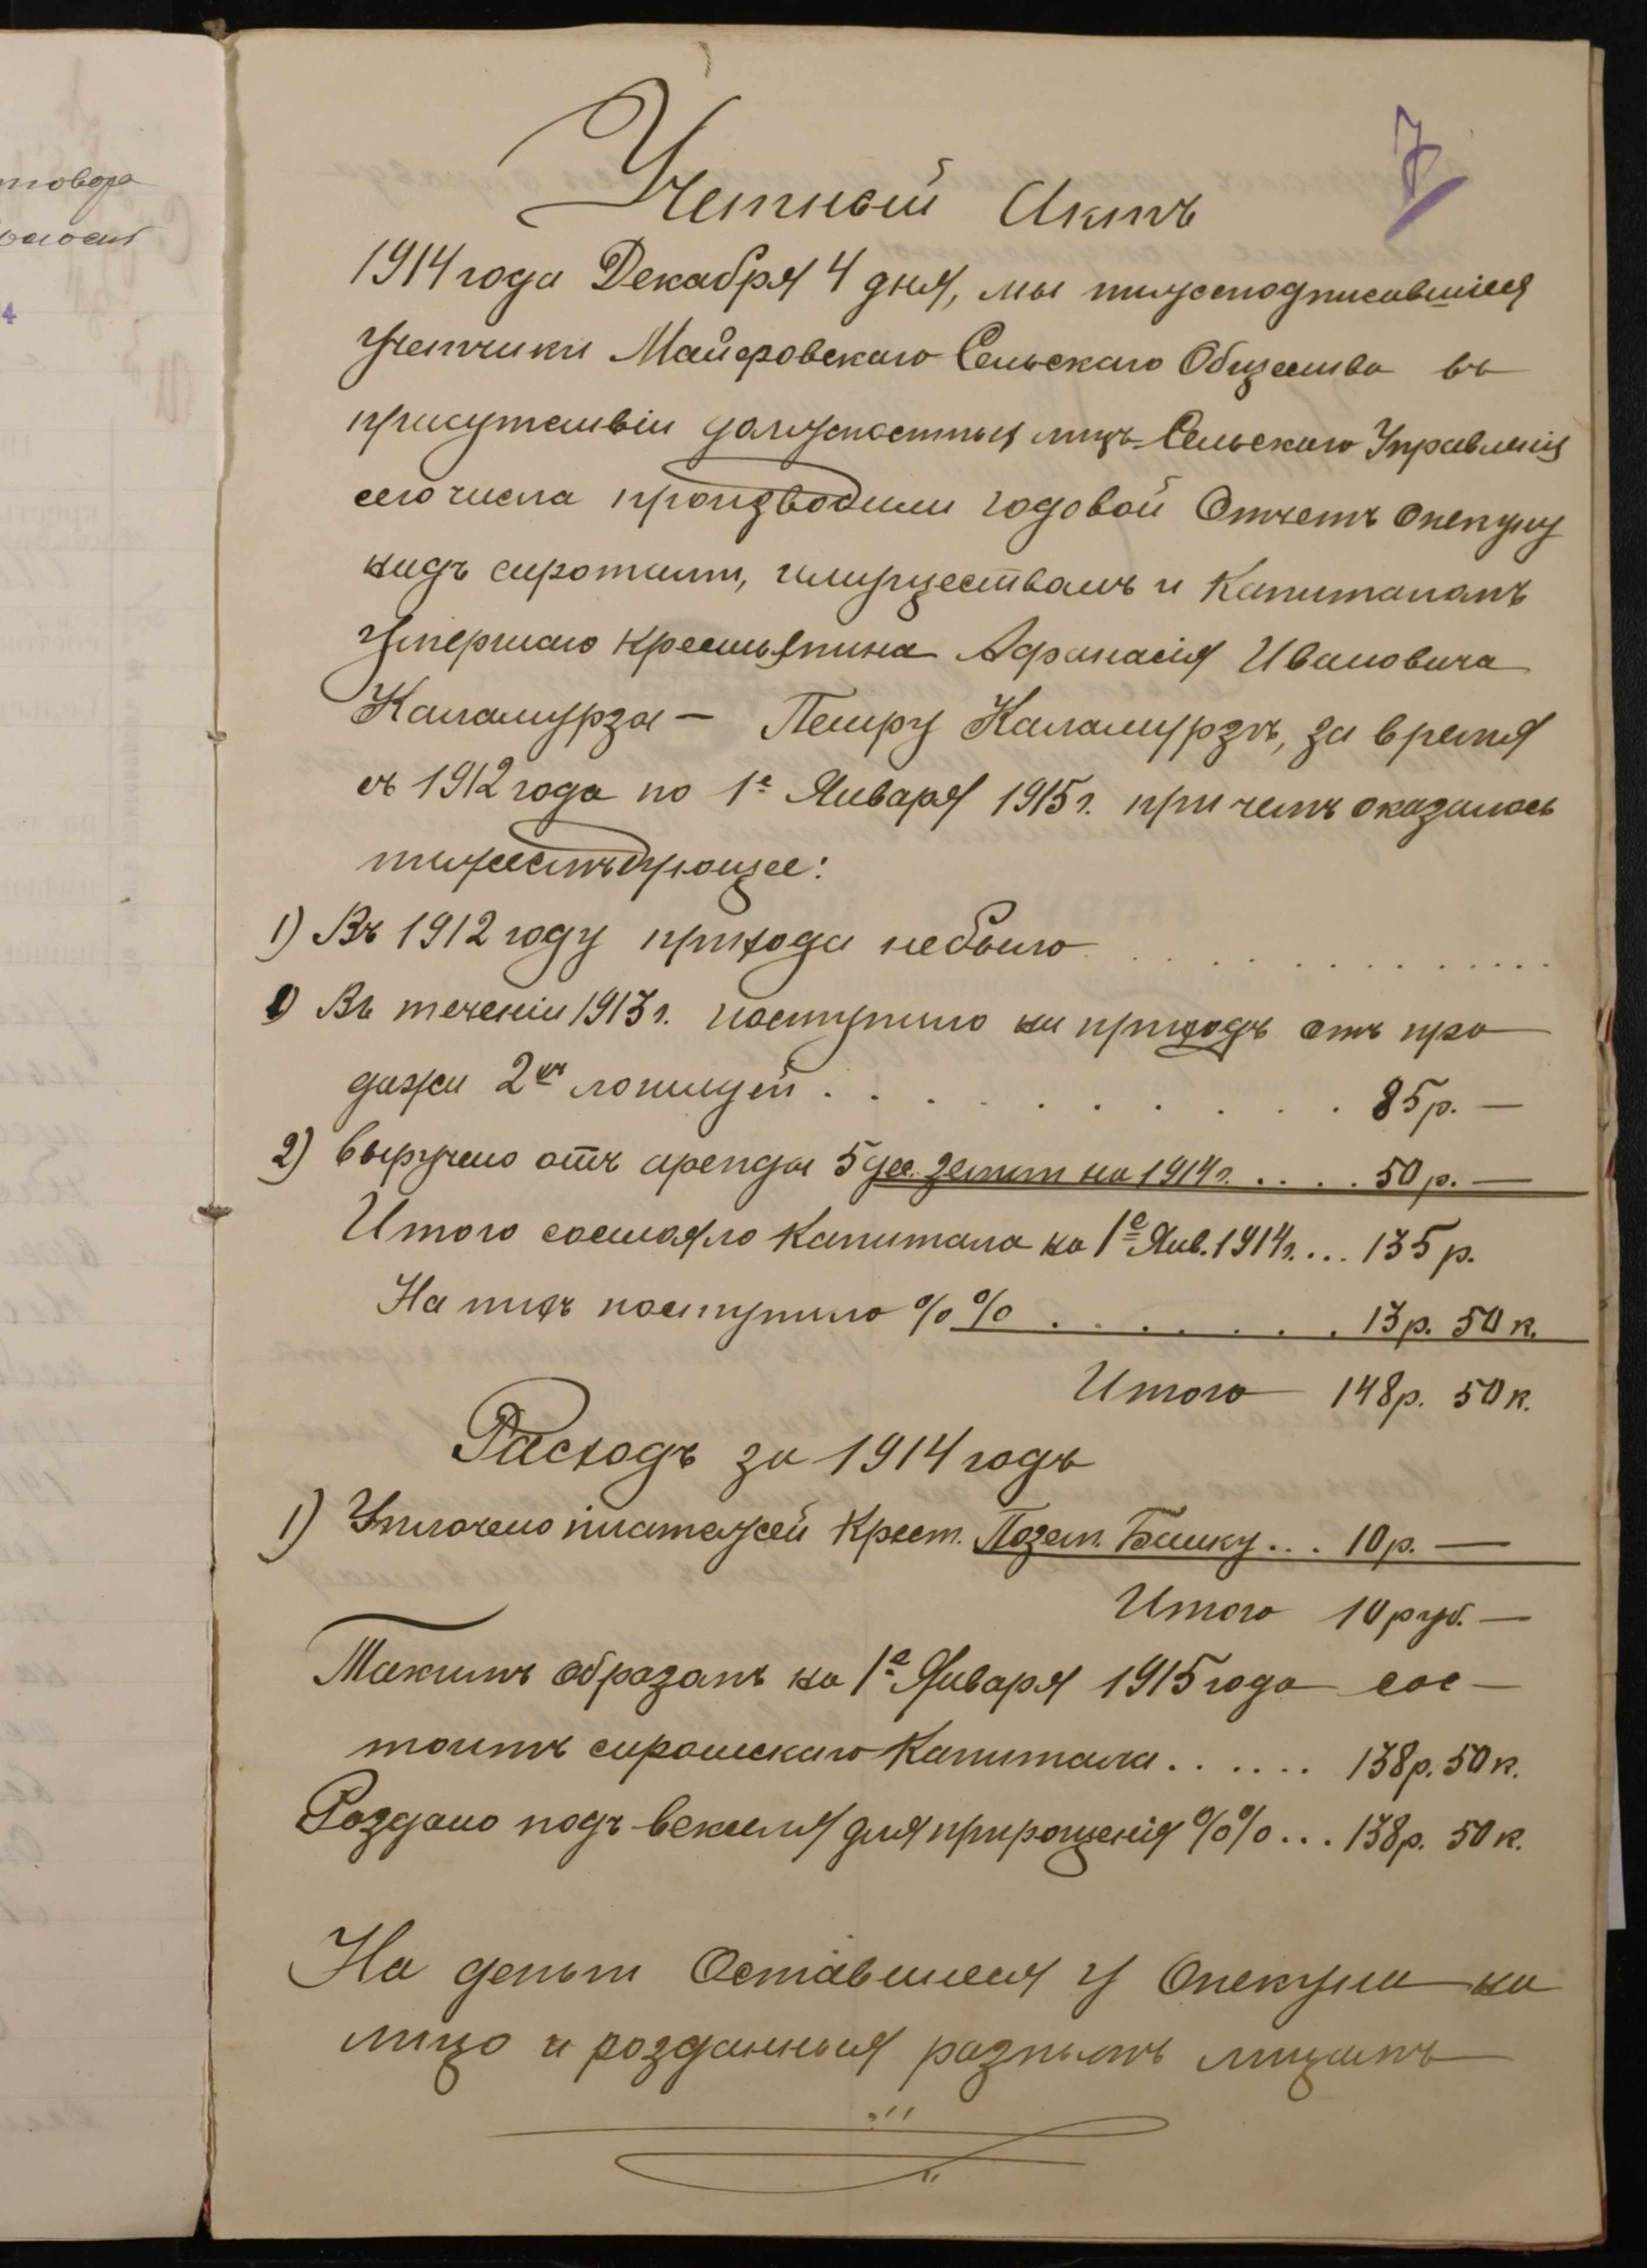 товора
4
7
Учетный Актъ
1914 года Декабря 4 дня, мы нижеподписавшіеся
учетчики Майеровскаго Сельскаго Общества въ
присутствіи должностныхъ лицъ Сельскаго Управленія
сего числа производили годовой Отчетъ Опекуну
надъ сиротами, имуществомъ и Капиталомъ
умершаго крестьянина Афанасія Ивановича
Каламурзы — Петру Каламурзѣ, за время
съ 1912 года по 1е Января 1915 г. при чемъ оказалось
нижеслѣдующее:
1) Въ 1912 году прихода небыло . . . . . . . . . . . .
1) Въ теченіи 1913 г. поступило на приходъ отъ про
дажи 2хъ лошадей . . . . . . . . . . 85 р. —
2) Выручено отъ аренды 5 дес. земли на 1914 г. . . . . 50 р. —
Итого состояло Капитала на 1е Янв. 1914 г. ... 135 р.
На нихъ поступило %% . . . . . . . 13 р. 50 к.
Итого 148 р. 50 к.
Расходъ за 1914 годъ
1) Уплочено платежей Крест. Позем. Банку ... 10 р. —
Итого 10 руб. —
Такимъ образомъ на 1е Января 1915 года сос—
тоитъ сиротскаго Капитала . . . . . . 138 р. 50 к.
Роздано подъ векселя для прирощенія %% ... 138 р. 50 к.
На деньги Оставшіеся у Опекуна на
лицо и розданныя разнымъ лицамъ